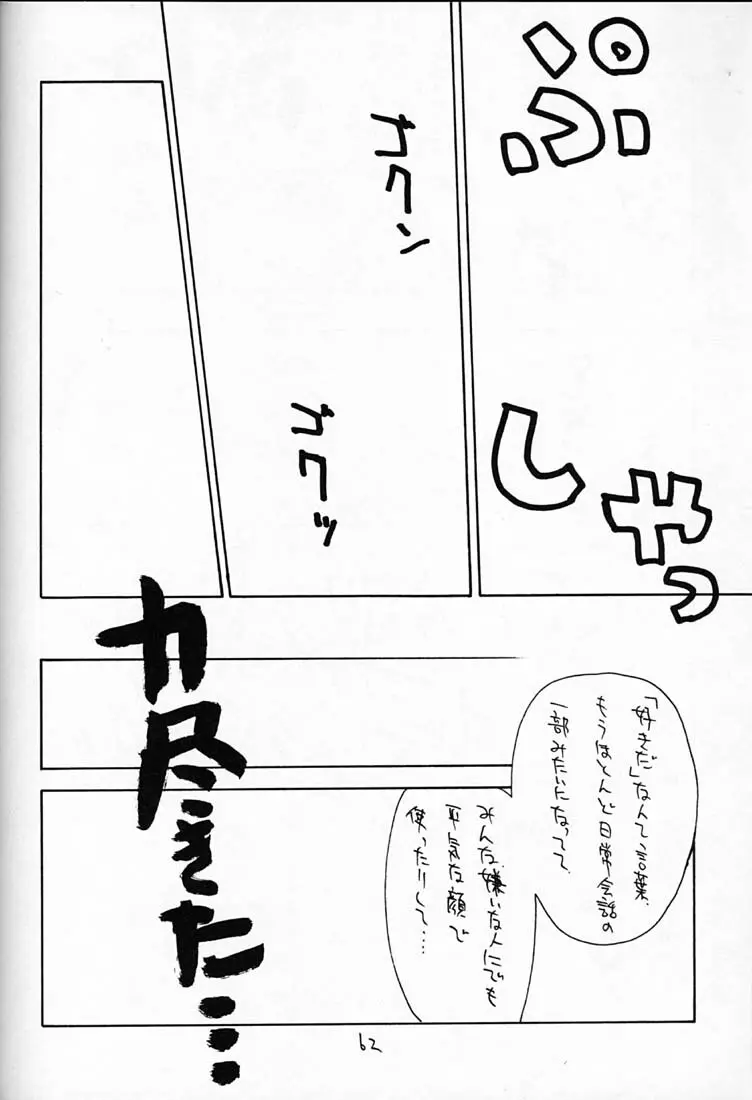 ぷ
しゃっ
ガクン
ガクッ
「好きだ」なんて、言葉、
もうほとんど日常会話の
一部みたいになってて
みんな嫌いな人にでも
平気な顔で
使ったりして……
力尽きた……
62